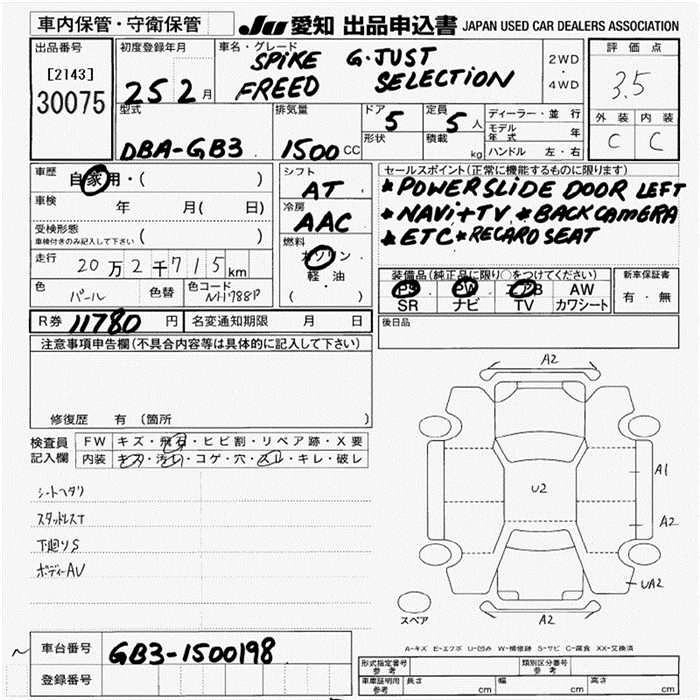 車内保管・守衛保管
JU 愛知 出品申込書 JAPAN USED CAR DEALERS ASSOCIATION
出品番号
[2143]
30075
初度登録年月
25 2 月
車名・グレード
SPIKE G・JUST
FREED SELECTION
2WD
・
4WD
評価点
3.5
外装 内装
C C
型式
DBA-GB3
排気量
1500 CC
ドア 5
形状
定員 5 人
積載 kg
ディーラー・並行
モデル年式 年
ハンドル 左・右
車歴 自家用・( )
車検 年 月( 日)
受検形態
車検付きのみ記入して下さい ( )
走行 20万2千715km
色 パール 色替 色コード NH788P
シフト
AT
冷房
AAC
燃料
ガソリン
軽・油
( )
セールスポイント(正常に機能するものに限ります)
*POWERSLIDE DOOR LEFT
*NAVi+TV *BACK CAMERA
*ETC*RECARO SEAT
装備品(純正品に限り○をつけてください)
PS PW エアB AW
SR ナビ TV カワシート
新車保証書
有・無
R券 11780 円 名変通知期限 月 日
後日品
注意事項申告欄(不具合内容等は具体的に記入して下さい)
修復歴 有(箇所 )
検査員記入欄
FW キズ・飛石・ヒビ割・リペア跡・X要
内装 キズ・汚レ・コゲ・穴・スレ・キレ・破レ
シートヘタリ
スタッドレスT
下廻りS
ボディーAV
A2
U2
A1
A2
UA2
A2
スペア
A-キズ E-エクボ U-凹み W-補修跡 S-サビ C-腐食 XX-交換済
車台番号 GB3-1500198
登録番号
形式指定番号 参考
類別区分番号 参考
車庫証明用 参考 長さ cm 幅 cm 高さ cm